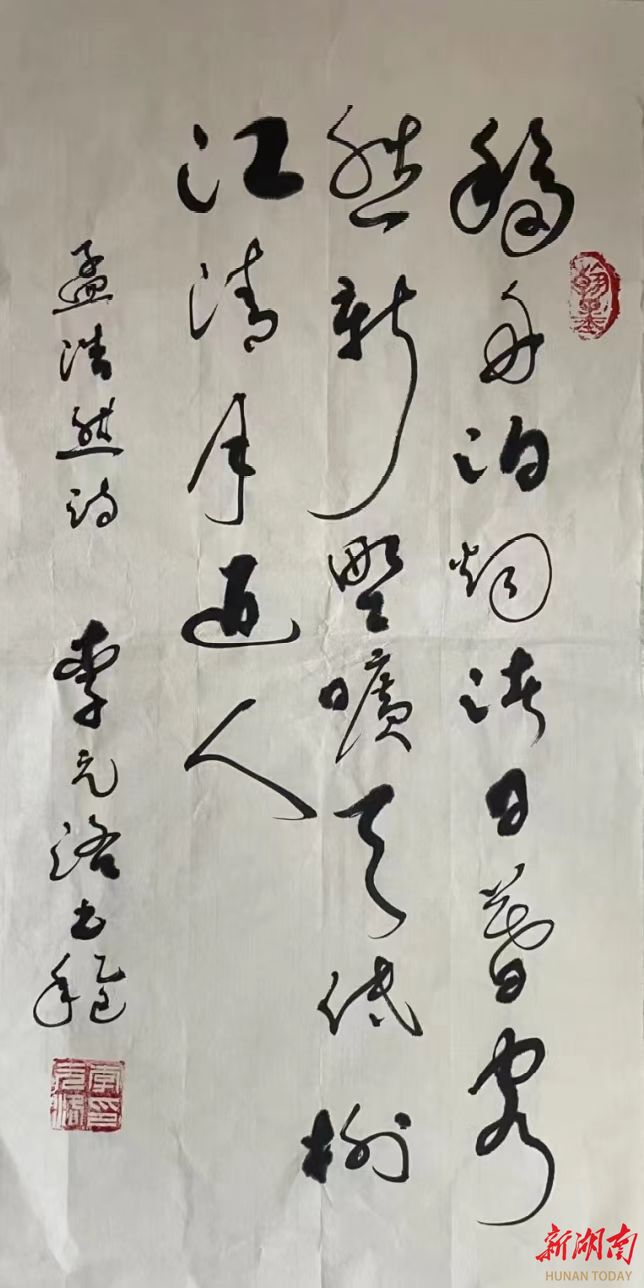 移舟泊烟渚日暮客
愁新野曠天低树
江清月近人
孟浩然诗 李元洛书乙巳年
李印元洛
新湖南
HUNAN TODAY